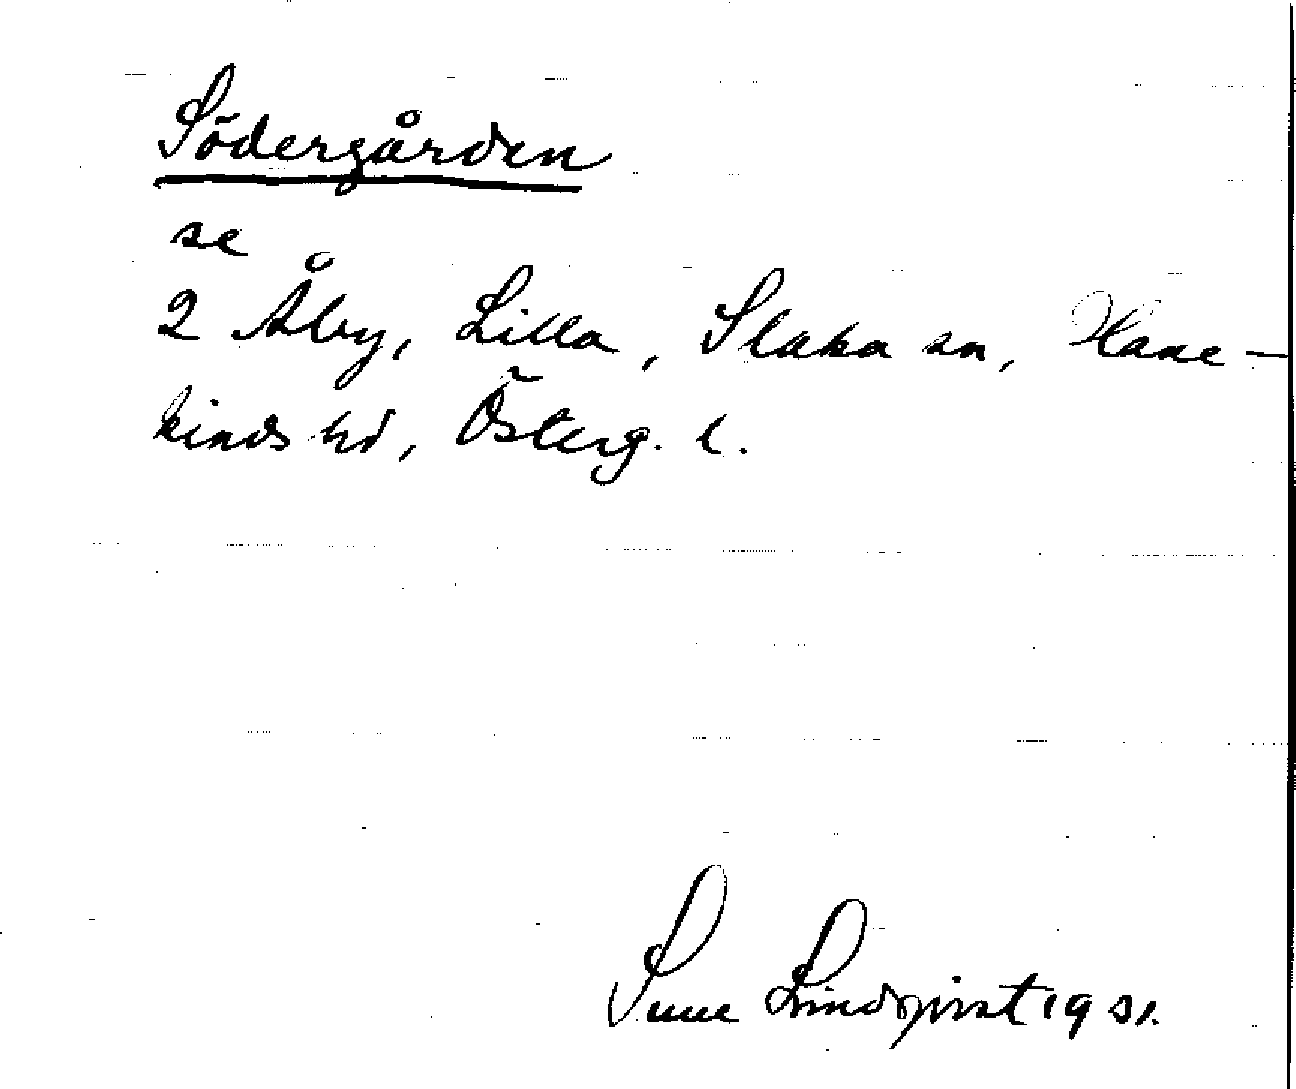 Södergården
se
2 Åby, Lilla, Slaka sn, Hane-
kinds hd, Österg. l.
Sune Lindqvist 1931.